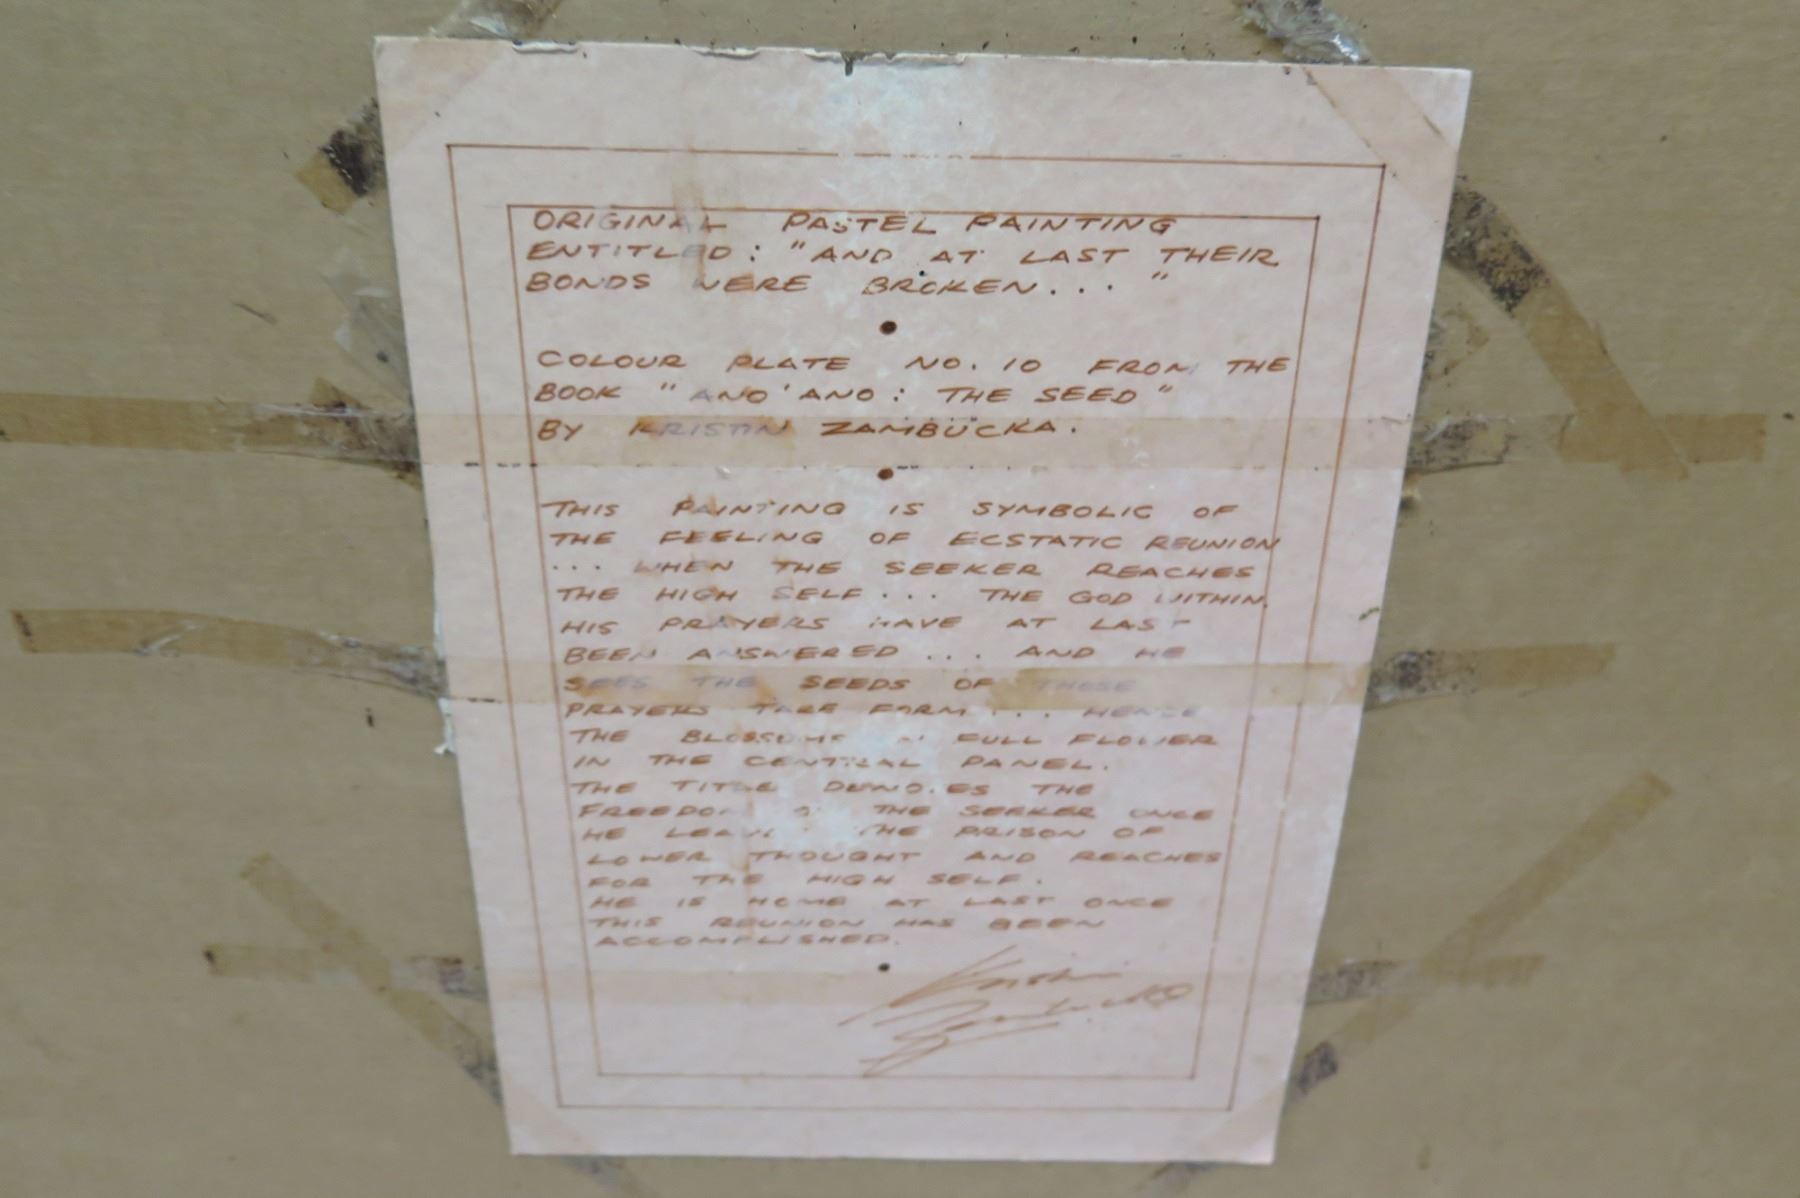 ORIGINAL PASTEL PAINTING
ENTITLED: "AND AT LAST THEIR
BONDS WERE BROKEN... "
COLOUR PLATE NO. 10 FROM THE
BOOK "ANO'ANO: THE SEED"
BY KRISTIN ZAMBUCKA.
THIS PAINTING IS SYMBOLIC OF
THE FEELING OF ECSTATIC REUNION
... WHEN THE SEEKER REACHES
THE HIGH SELF... THE GOD WITHIN.
HIS PRAYERS HAVE AT LAST
BEEN ANSWERED... AND HE
SEES THE SEEDS OF THESE
PRAYERS TAKE FORM... HENCE
THE BLOSSOMS IN FULL FLOWER
IN THE CENTRAL PANEL.
THE TITLE DENOTES THE
FREEDOM OF THE SEEKER ONCE
HE LEAVES THE PRISON OF
LOWER THOUGHT AND REACHES
FOR THE HIGH SELF.
HE IS HOME AT LAST ONCE
THIS REUNION HAS BEEN
ACCOMPLISHED.
Kristin
Zambucka